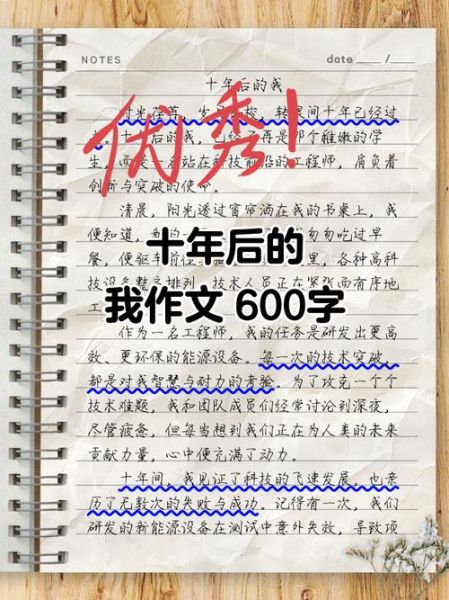 NOTES
date ____ /____
十年后的我
时光荏苒，岁月如梭，转眼间十年已经过
十年后的我，已经不再是那个稚嫩的学
生，而是一名站在科技前沿的工程师，肩负着
创新与突破的使命。
优秀！
清晨，阳光透过窗帘洒在我的书桌上，我
便知道，新的一
匆匆吃过早
餐，便驱车前往
里，各种高科
技设备整齐排列，技术人员正在紧张而有序地
工
十年后的
我作文 600字
作为一名工程师，我的任务是研发出更高
效、更环保的能源设备。每一次的技术突破，
都是对我智慧与耐力的考验。为了攻克一个个
技术难题，我和团队成员们经常讨论到深夜，
尽管疲惫，但每当想到我们正在为人类的未来
贡献力量，心中便充满了动力。
十年间，我见证了科技的飞速发展，也亲
历了无数次的失败与成功。记得有一次，我们
研发的新能源设备在测试中意外失效，导致项